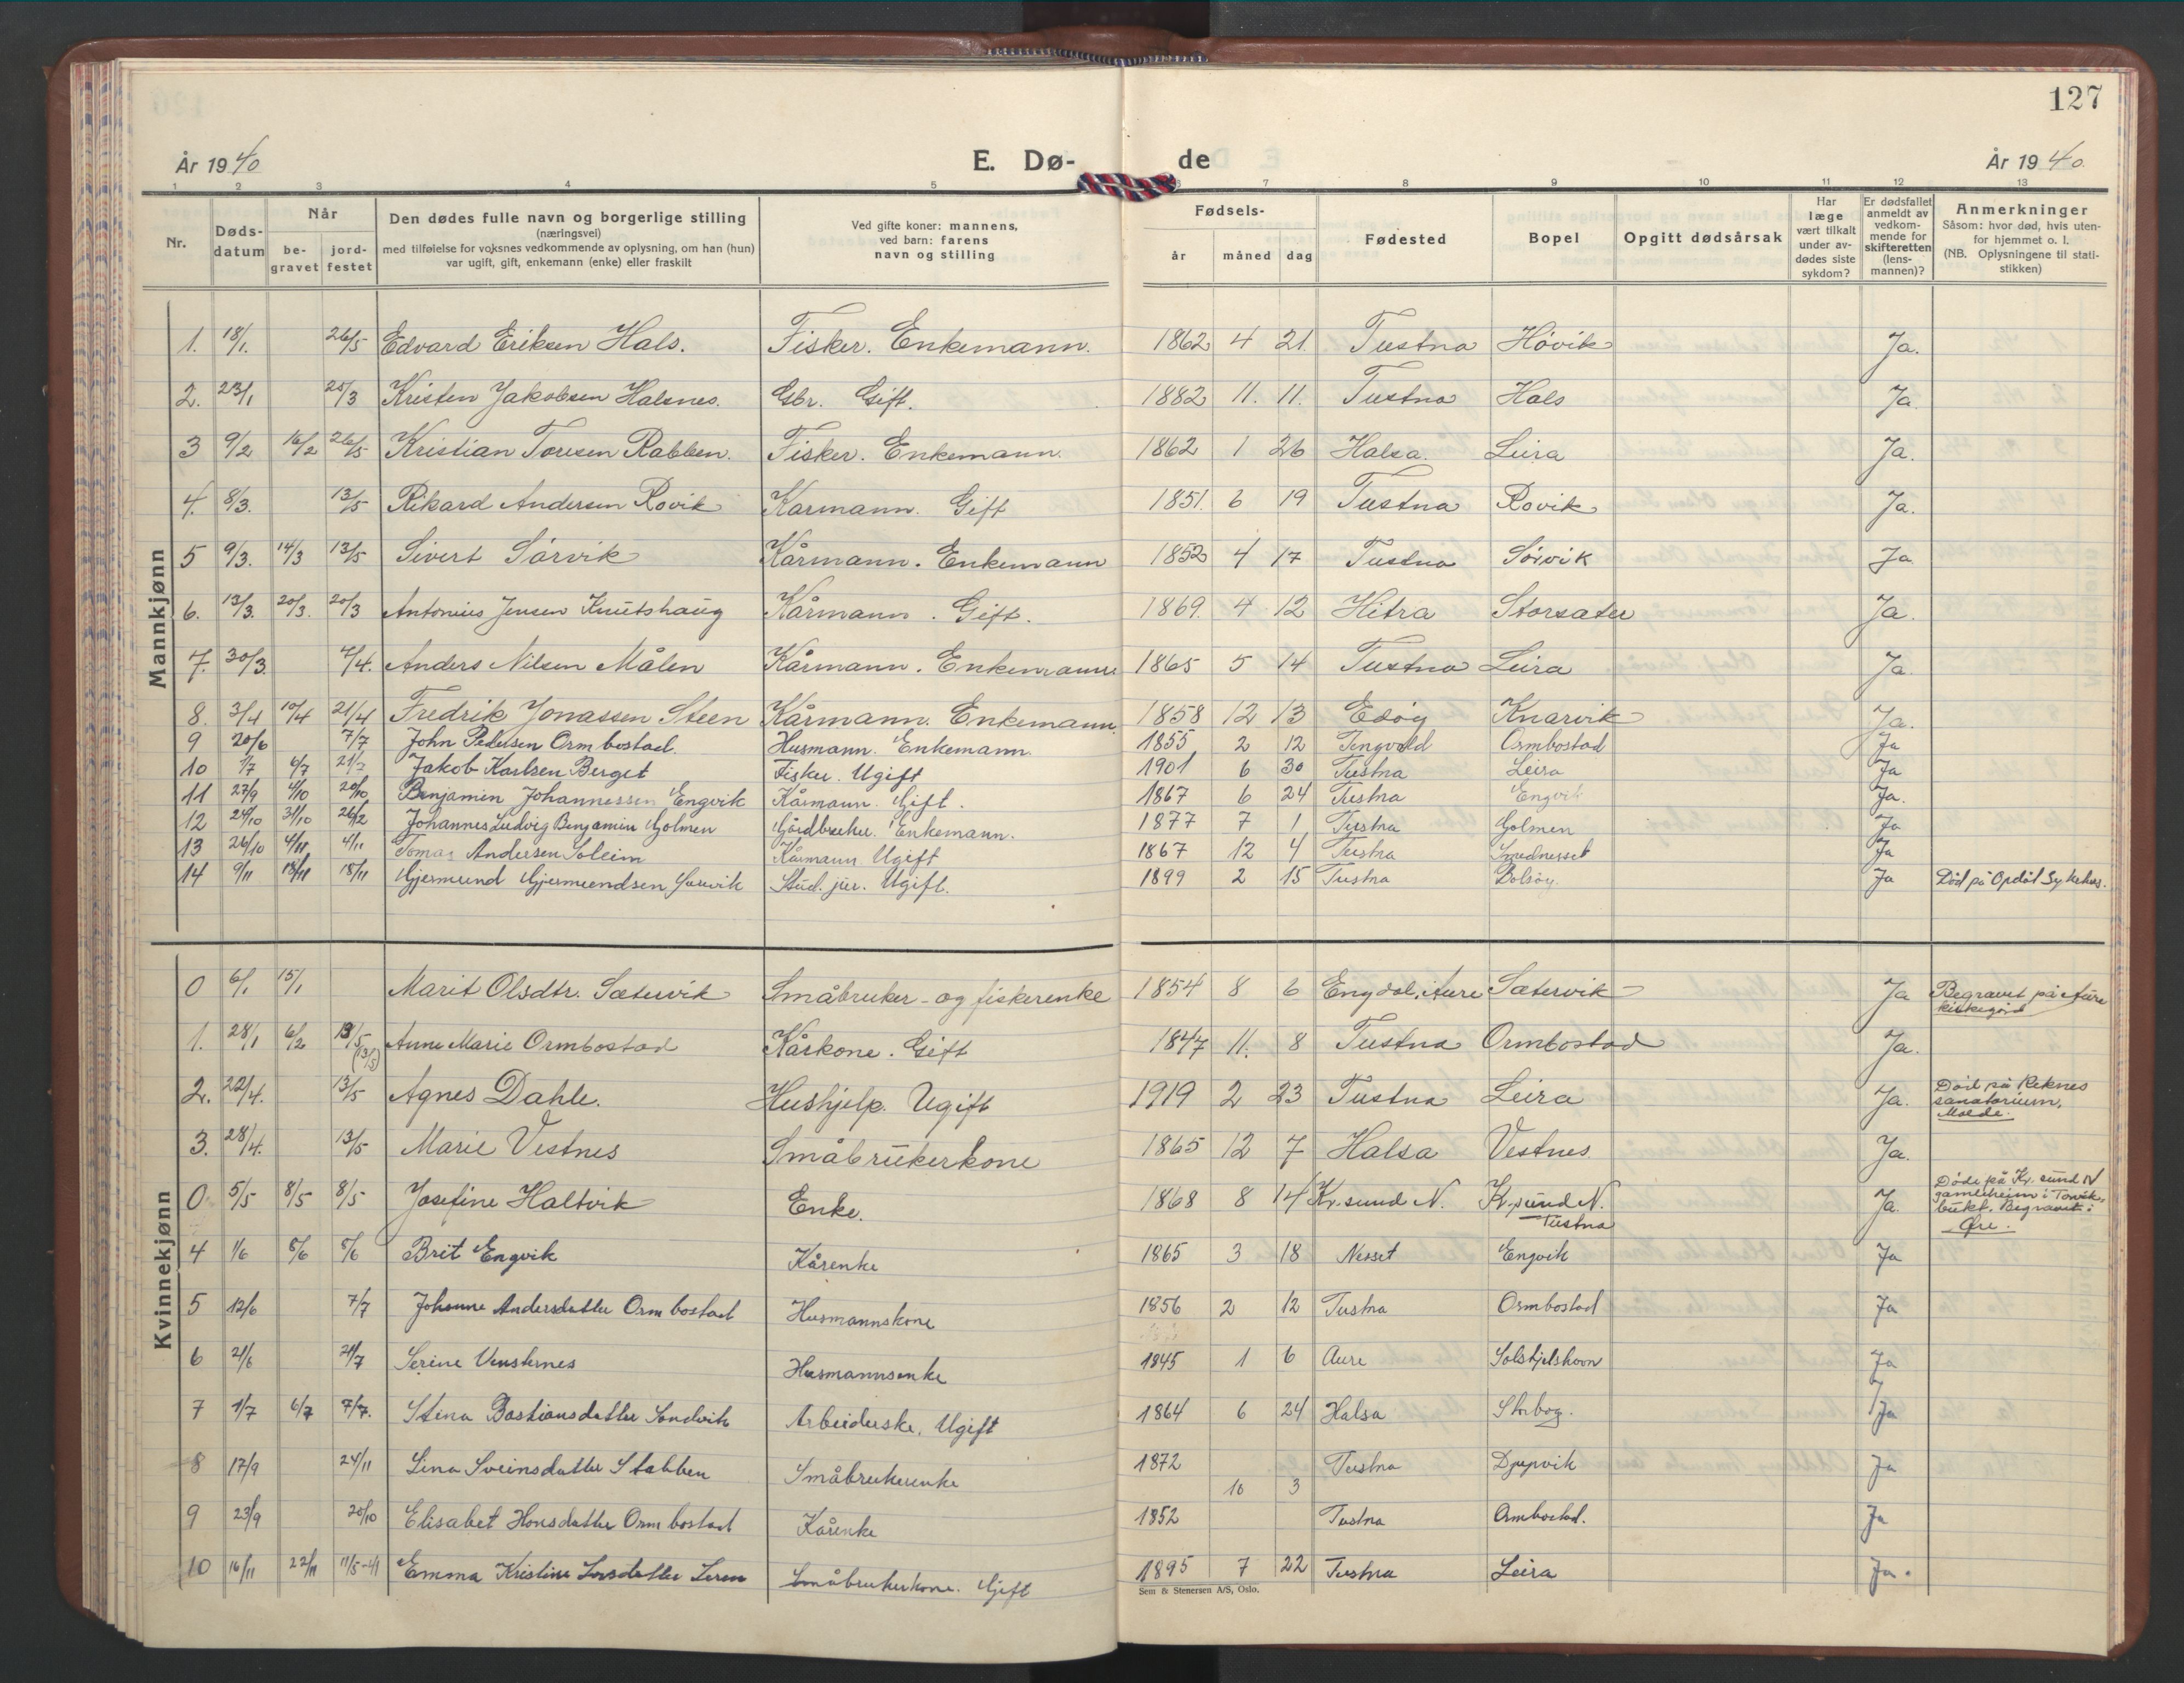 127
År 1940 E. Dø- de År 1940.
1 2 3 4 5 6 7 8 9 10 11 12 13
Nr. Døds-datum Når be-gravet jord-festet Den dødes fulle navn og borgerlige stilling (næringsvei) med tilføielse for voksnes vedkommende av oplysning, om han (hun) var ugift, gift, enkemann (enke) eller fraskilt Ved gifte koner: mannens, ved barn: farens navn og stilling Fødsels- år måned dag Fødested Bopel Opgitt dødsårsak Har læge vært tilkalt under av-dødes siste sykdom? Er dødsfallet anmeldt av vedkom-mende for skifteretten (lens-mannen)? Anmerkninger Såsom: hvor død, hvis uten-for hjemmet o. l. (NB. Oplysningene til stati-stikken)
Mannkjønn
1. 18/1. 26/5 Edvard Eriksen Hals. Fisker. Enkemann. 1862 4 21. Tustna Høvik Ja.
2. 23/1 25/3 Kristen Jakobsen Halsnes. Gbr. Gift. 1882 11. 11. Tustna Hals Ja
3 9/2 16/2 26/5 Kristian Toresen Rabben. Fisker. Enkemann. 1862 1 26 Halsa. Leira Ja.
4. 8/3. 13/5 Rikard Andersen Rovik Kårmann. Gift 1851. 6 19 Tustna Rovik Ja.
5 9/3. 14/3 13/5 Sivert Sørvik Kårmann. Enkemann 1852 4 17 Tustna Sørvik Ja
6. 13/3. 20/3. 20/3 Antonius Jensen Knutshaug Kårmann. Gift. 1869. 4 12 Hitra Storsæter Ja.
7. 30/3. 7/4. Anders Nilsen Målen Kårmann. Enkemann 1865 5 14 Tustna Leira Ja.
8. 3/4 10/4 21/4 Fredrik Jonassen Steen Kårmann. Enkemann. 1858 12 13 Edøy Knarvik Ja.
9 20/6 7/7 John Pedersen Ormbostad. Husmann. Enkemann. 1855 2 12 Tingvold Ormbostad Ja
10 1/7 6/7 21/7 Jakob Karlsen Berget Fisker. Ugift 1901 6 30 Tustna Leira Ja
11 27/9 4/10 20/10 Benjamin Johannessen Engvik Kårmann. Gift. 1867 6 24 Tustna Engvik Ja.
12 24/10 31/10 26/12 Johannes Ludvig Benjamin Golmen Gårdbruker. Enkemann. 1877 7 1 Tustna Golmen Ja
13 26/10 4/11 4/11 Tomas Andersen Soleim Kårmann Ugift 1867 12 4 Tustna Smednesset Ja
14 9/11 18/11 18/11 Gjermund Gjermundsen Jurvik Stud. jur. Ugift. 1899 2 15 Tustna Bolsøy. Ja Død på Opdøl Sykehus.
Kvinnekjønn
0 6/1 15/1 Marit Olsdtr. Sætervik Småbruker- og fiskerenke 1854 8 6 Engdal, Aure Sætervik Ja Begravet på Aure kirkegård
1. 28/1 6/2 13/5 (13/5) Anne Marie Ormbostad Kårkone. Gift 1847 11. 8 Tustna Ormbostad Ja.
2. 22/4. 13/5 Agnes Dahle. Hushjelp. Ugift 1919 2 23 Tustna Leira Ja. Død på Reknes sanatorium, Molde.
3. 28/4. 13/5 Marie Vestnes Småbrukerkone 1865 12 7 Halsa Vestnes. Ja.
0 5/5 8/5 8/5 Josefine Haltvik Enke. 1868 8 14 Kr. sund N. Kr. sund N. Tustna Ja. Døde på Kr. sund N gamleheim i Torvik-bukt. Begravet i Øre.
4 1/6 8/6 8/6 Brit Engvik Kårenke 1865 3 18 Nesset Engvik Ja
5 12/6 7/7 Johanne Andersdatter Ormbostad Husmannskone 1856 2 12 Tustna Ormbostad Ja
6 21/6 21/7 Serine Husmannsenke 1845 1 6 Aure Ja
7 1/7 6/7 7/7. Stina Bastiansdatter Sandvik Arbeiderske. Ugift 1864 6 24 Halsa Ja
8 17/9 24/11 Lina Sveinsdatter Stabben Småbrukerenke 1872 10 3 Tustna Djupvik Ja
9 23/9 20/10 Elisabet Hansdatter Ormbostad Kårenke 1852 Tustna Ormbostad. Ja
10 16/11 22/11 11/5-41 Emma Kristine Larsdatter Leren Småbrukerkone. Gift 1895 7 22 Tustna Leira Ja.
Sem & Stenersen A/S, Oslo.